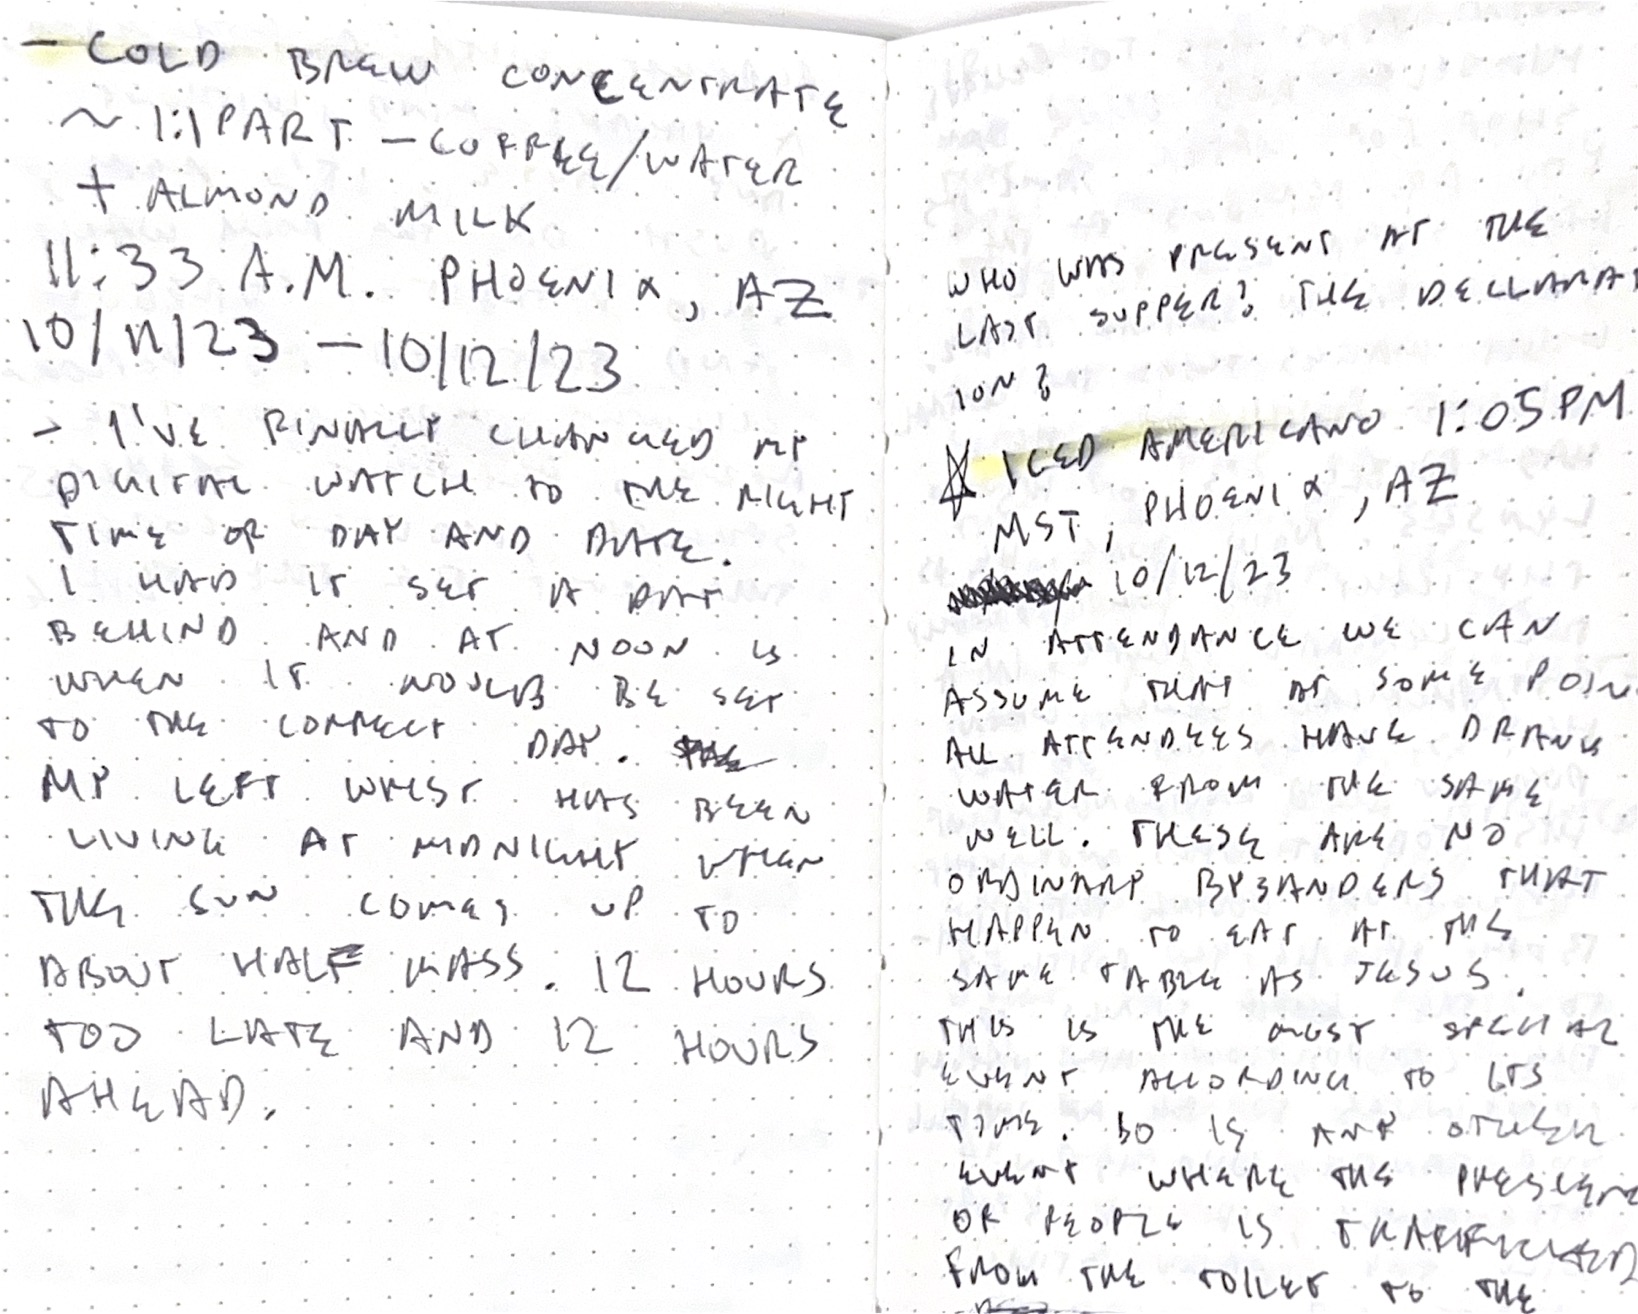 - COLD BREW CONCENTRATE
~ 1:1 PART - COFFEE/WATER
+ ALMOND MILK
11:33 A.M. PHOENIX, AZ
10/11/23 - 10/12/23
- I'VE FINALLY CHANGED MY
DIGITAL WATCH TO THE RIGHT
TIME OF DAY AND DATE.
I HAD IT SET A DAY
BEHIND AND AT NOON IS
WHEN IT WOULD BE SET
TO THE CORRECT DAY.
MY LEFT WRIST HAS BEEN
LIVING AT MIDNIGHT WHEN
THE SUN COMES UP TO
ABOUT HALF MASS. 12 HOURS
TOO LATE AND 12 HOURS
AHEAD.
WHO WAS PRESENT AT THE
LAST SUPPER? THE DECLARAT
ION?
☆ ICED AMERICANO 1:05PM
MST, PHOENIX, AZ
10/12/23
IN ATTENDANCE WE CAN
ASSUME THAT AT SOME POIN
ALL ATTENDEES HAVE DRANK
WATER FROM THE SAME
WELL. THESE ARE NO
ORDINARY BYSANDERS THAT
HAPPEN TO EAT AT THE
SAME TABLE AS JESUS.
THIS IS THE MOST SPECIAL
EVENT ACCORDING TO ITS
TIME. SO IS ANY OTHER
EVENT WHERE THE PRESENC
OF PEOPLE IS TRAFFICKED
FROM THE TOILET TO THE